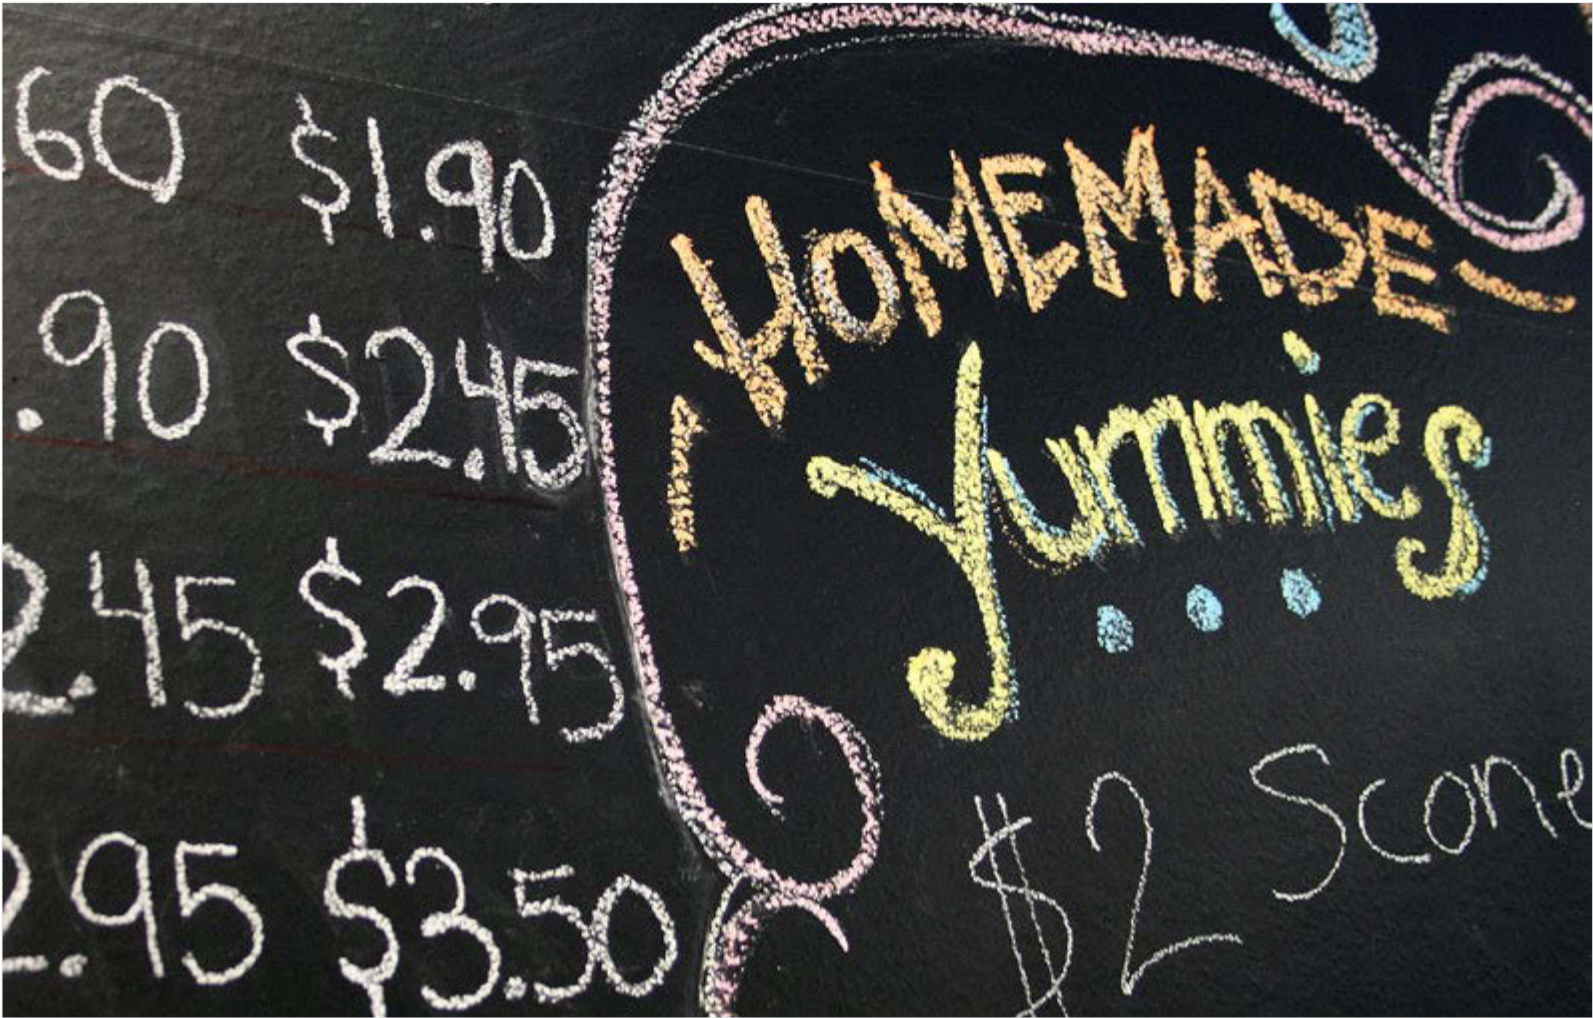 60 $1.90
.90 $2.45
2.45 $2.95
2.95 $3.50
HOMEMADE
Yummies
$2 Scone